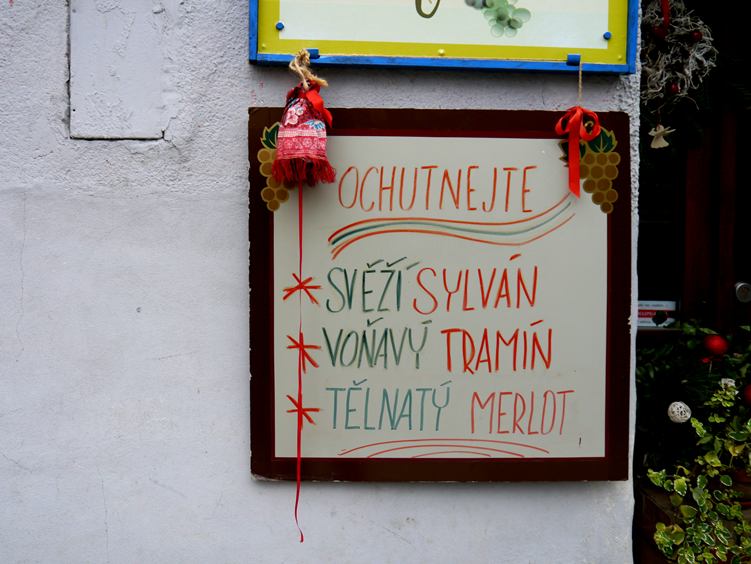 OCHUTNEJTE
SVĚŽÍ SYLVÁN
VOŇAVÝ TRAMÍN
TĚLNATÝ MERLOT